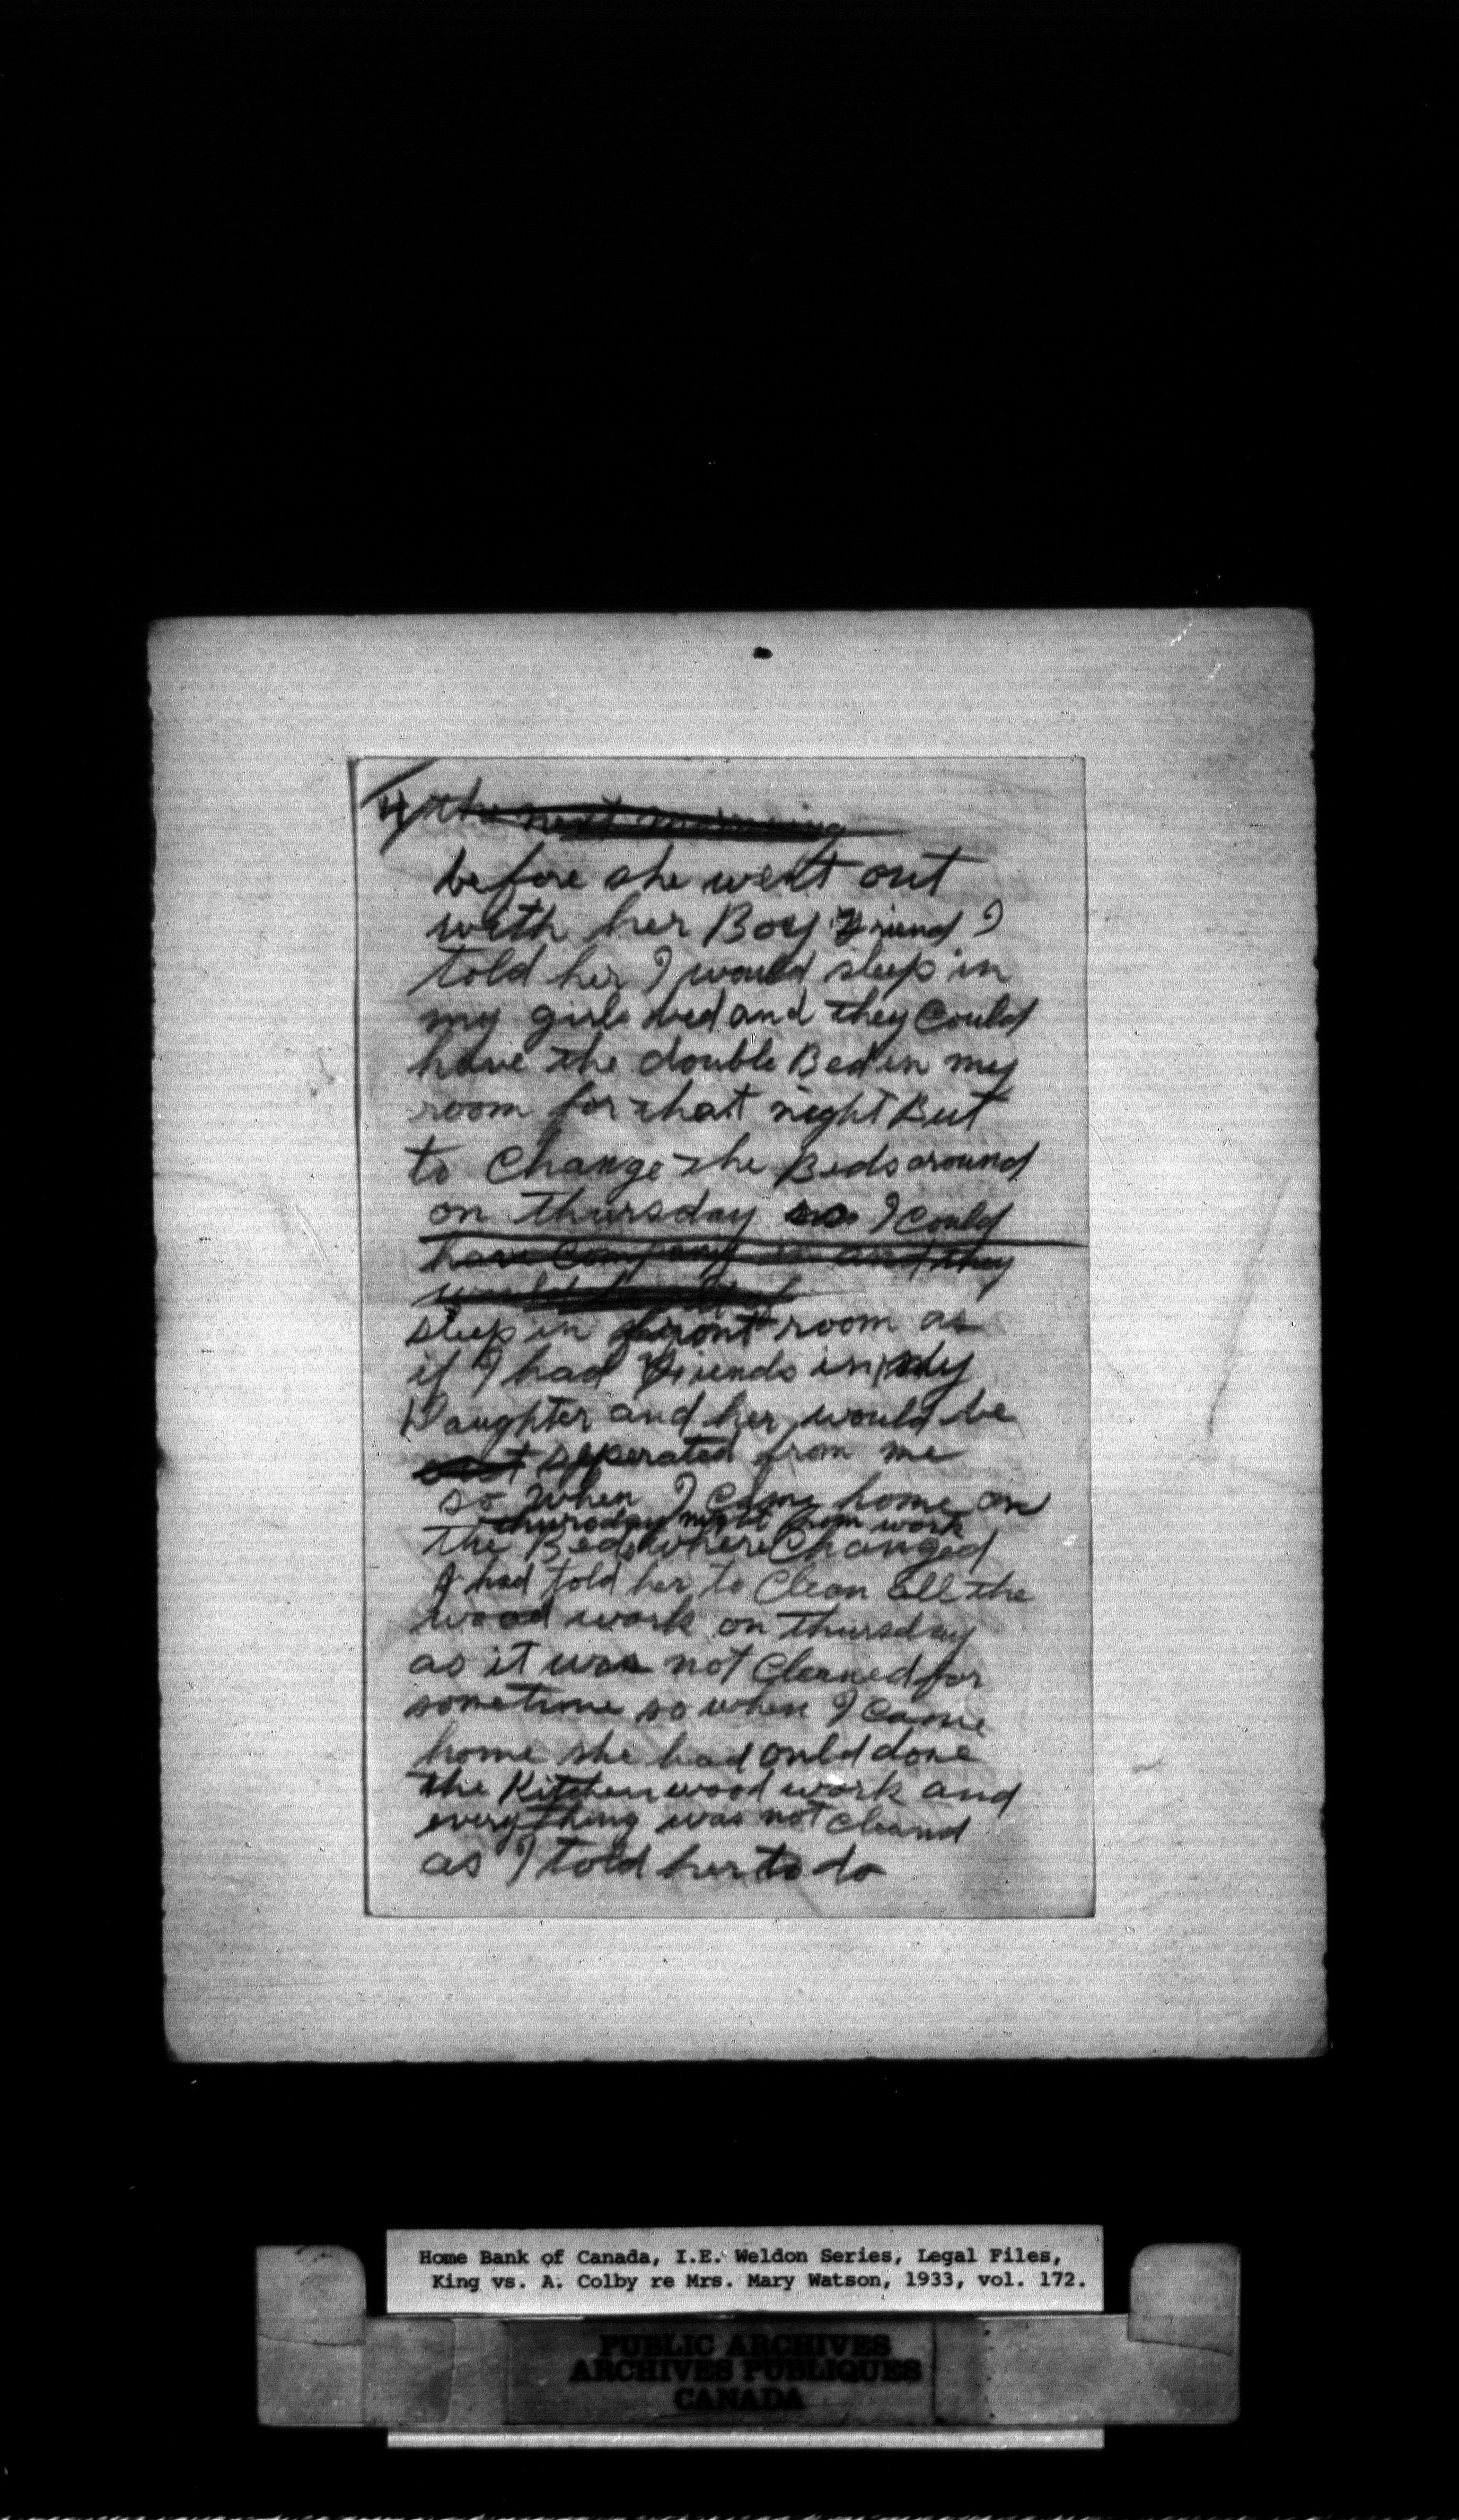 4) the next morning
before she went out
with her Boy Friend I
told her I would sleep in
my girls bed and they Could
have the double Bed in my
room for that night But
to Change the Beds around
on thursday so I Could
have Company in and they
would
sleep in front room as
if I had Friends in, my
Daughter and her would be
seperated from me
so when I came home on
thursday night from work
the Beds where Changed
I had told her to Clean all the
wood work on thursday
as it was not Cleaned for
sometime so when I came
home she had onld done
the Kitchen wood work and
everything was not cleand
as I told her to do
Home Bank of Canada, I.E. Weldon Series, Legal Files,
King vs. A. Colby re Mrs. Mary Watson, 1933, vol. 172.
PUBLIC ARCHIVES
ARCHIVES PUBLIQUES
CANADA